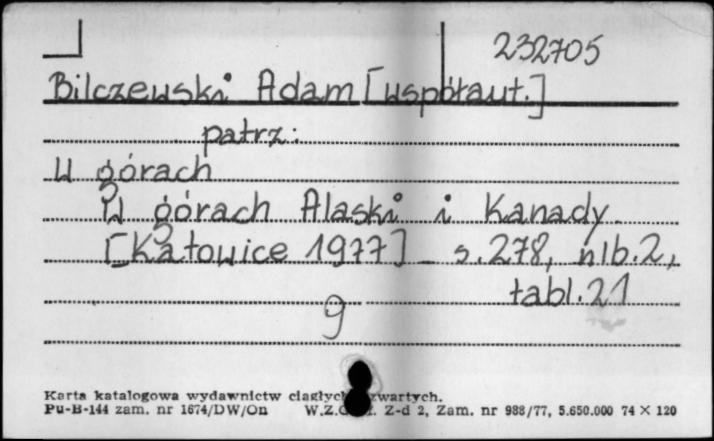 232705
Bilczewski Adam [współaut.]
patrz:
W górach
W górach Alaski i Kanady.
[Katowice 1977] - s. 278, nlb. 2,
tabl. 21
9
Karta katalogowa wydawnictw ciągłych zwartych.
Pu-B-144 zam. nr 1674/DW/On W.Z.G. Z-d 2, Zam. nr 988/77, 5.650.000 74 × 120